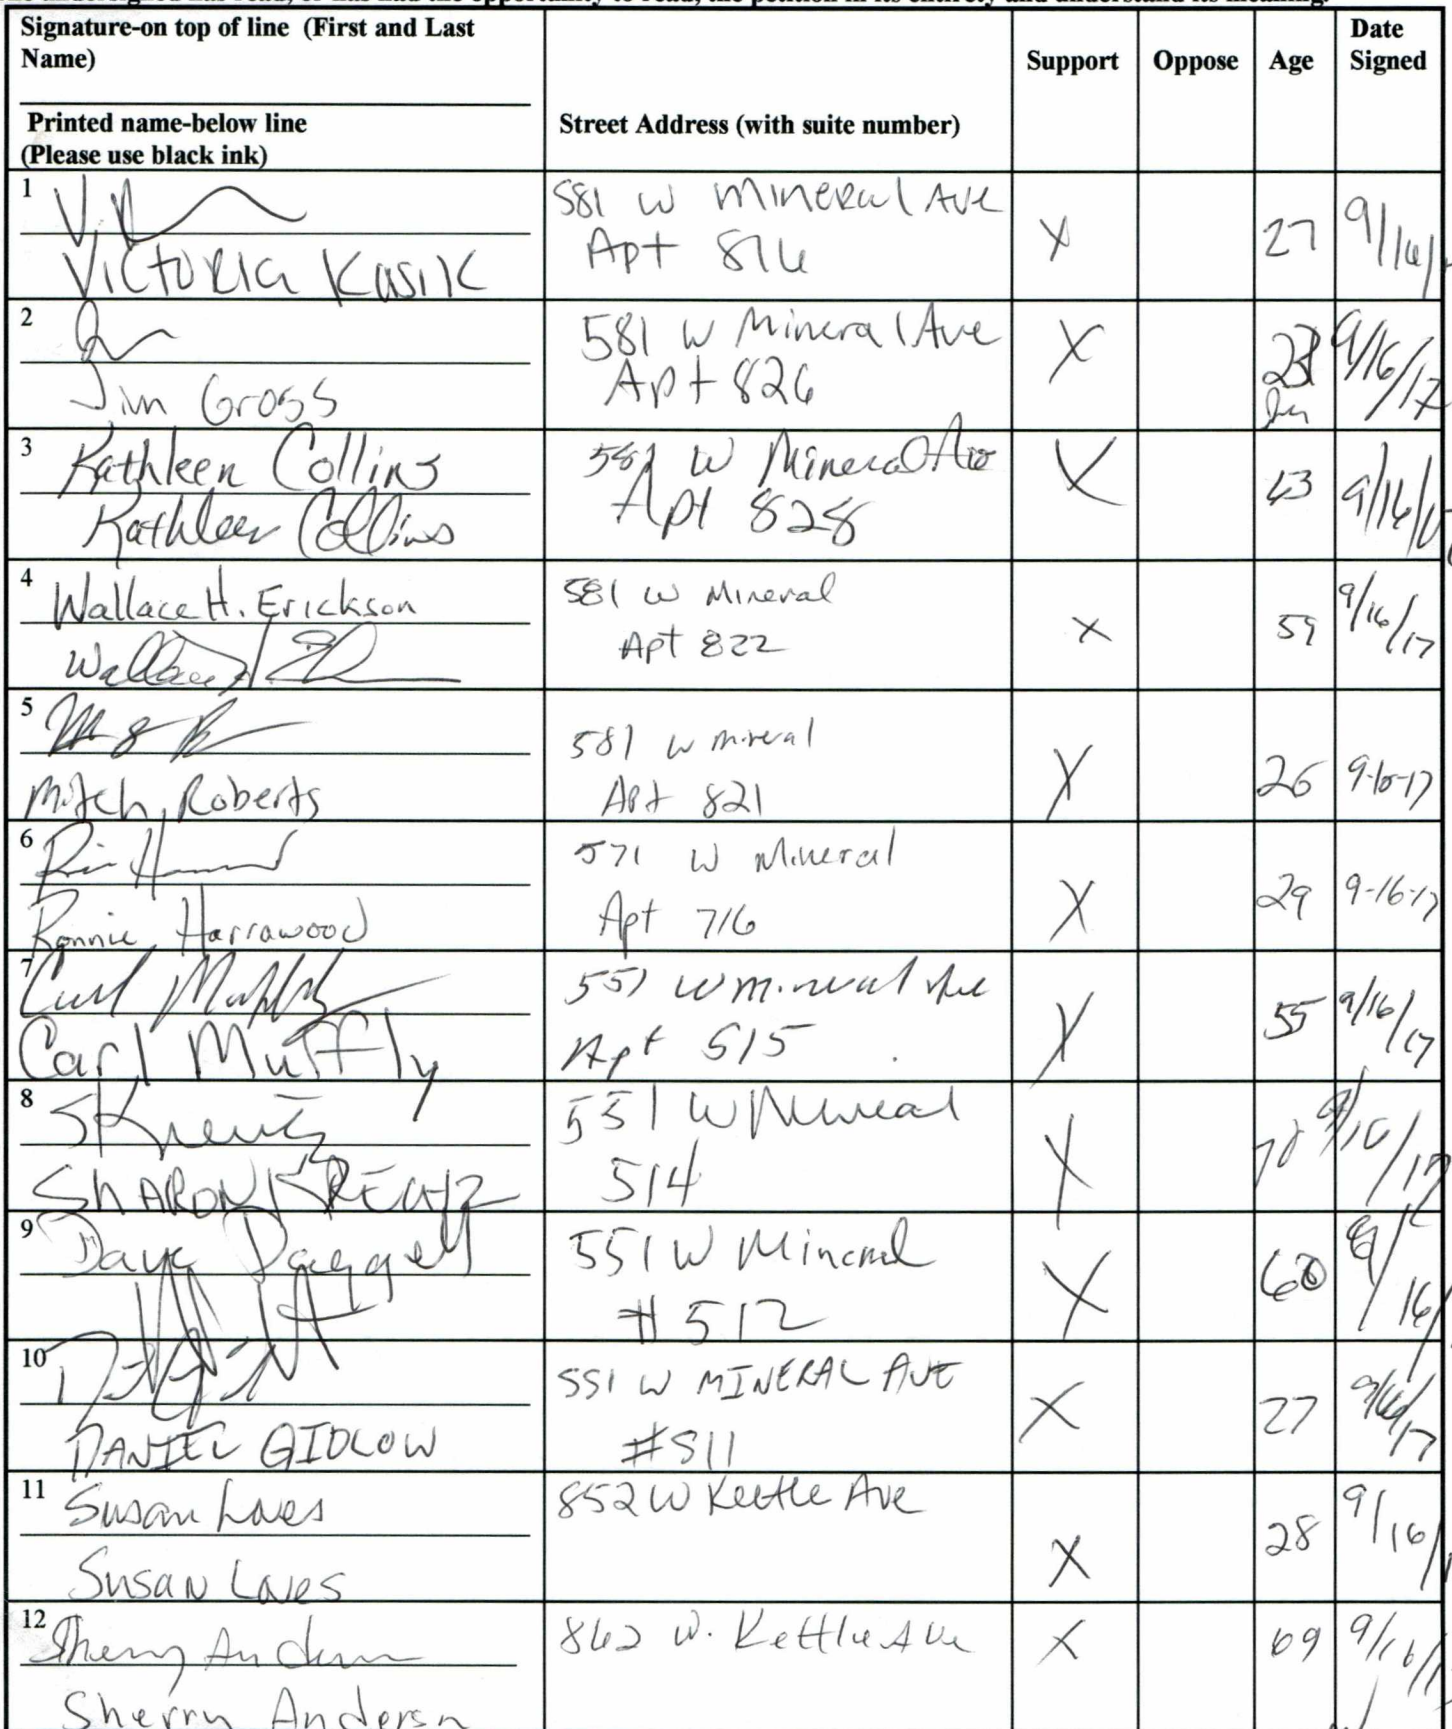 Signature-on top of line (First and Last
Name)
Printed name-below line
(Please use black ink)
Street Address (with suite number)
Support
Oppose
Age
Date
Signed
1
Victoria Kasik
581 W Mineral Ave
Apt 816
X
27
9/16/
2
Jim Gross
581 W Mineral Ave
Apt 826
X
9/16/17
3
Kathleen Collins
Kathleen Collins
581 W Mineral Ave
Apt 828
X
9/16/
4
Wallace H. Erickson
581 W Mineral
Apt 822
X
59
9/16/17
5
Mitch Roberts
581 W mineral
Apt 821
X
26
9-16-17
6
Ronnie Harrawood
571 W Mineral
Apt 716
X
29
9-16-17
7
Carl Muffly
551 W mineral Ave
Apt 515
X
55
9/16/17
8
SKreutz
SHARON KREUTZ
551 W Mineral
514
X
9/16/17
9
Dave Daggett
551 W Mineral
#512
X
9/16/
10
DANIEL GIDLOW
551 W MINERAL AVE
#511
X
27
9/16/17
11
Susan Laves
Susan Laves
852 W Kettle Ave
X
28
9/16/
12
Sherry Anderson
Sherry Anderson
862 W. Kettle Ave
X
69
9/16/